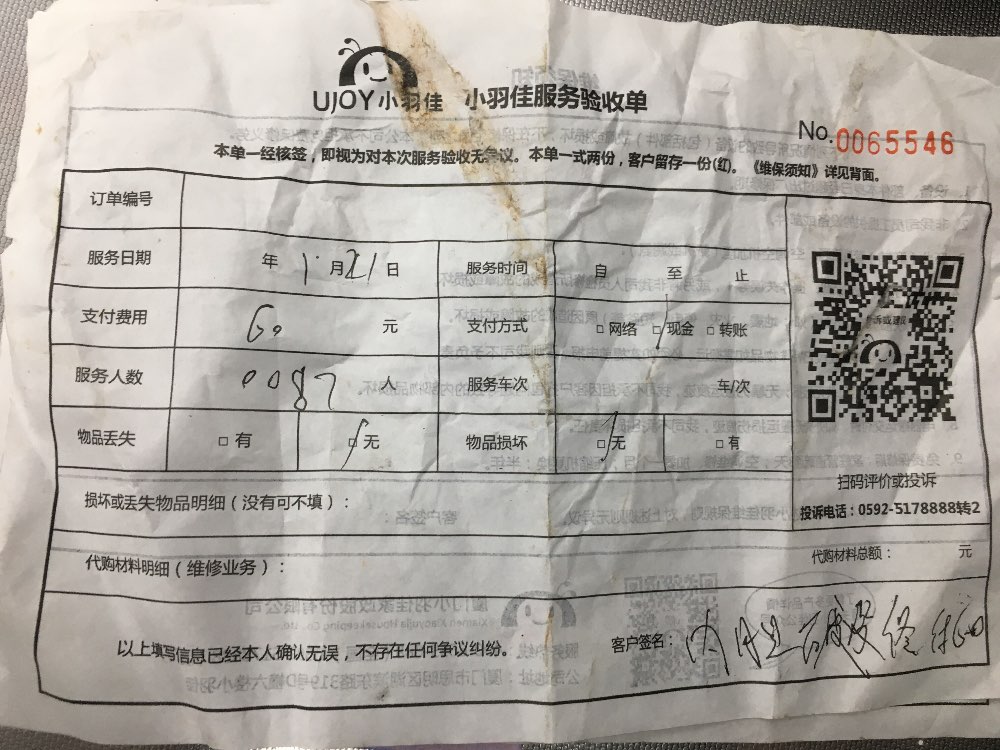 UJOY小羽佳 小羽佳服务验收单
No.0065546
本单一经核签，即视为对本次服务验收无争议。本单一式两份，客户留存一份(红)。《维保须知》详见背面。
订单编号
服务日期 年 1月21日 服务时间 自 至 止
支付费用 60 元 支付方式 □网络 □现金 □转账
服务人数 0087 人 服务车次 车/次
物品丢失 □有 □无 物品损坏 □无 □有
扫码评价或投诉
损坏或丢失物品明细（没有可不填）：
投诉电话：0592-5178888转2
代购材料明细（维修业务）： 代购材料总额： 元
以上填写信息已经本人确认无误，不存在任何争议纠纷。 客户签名：